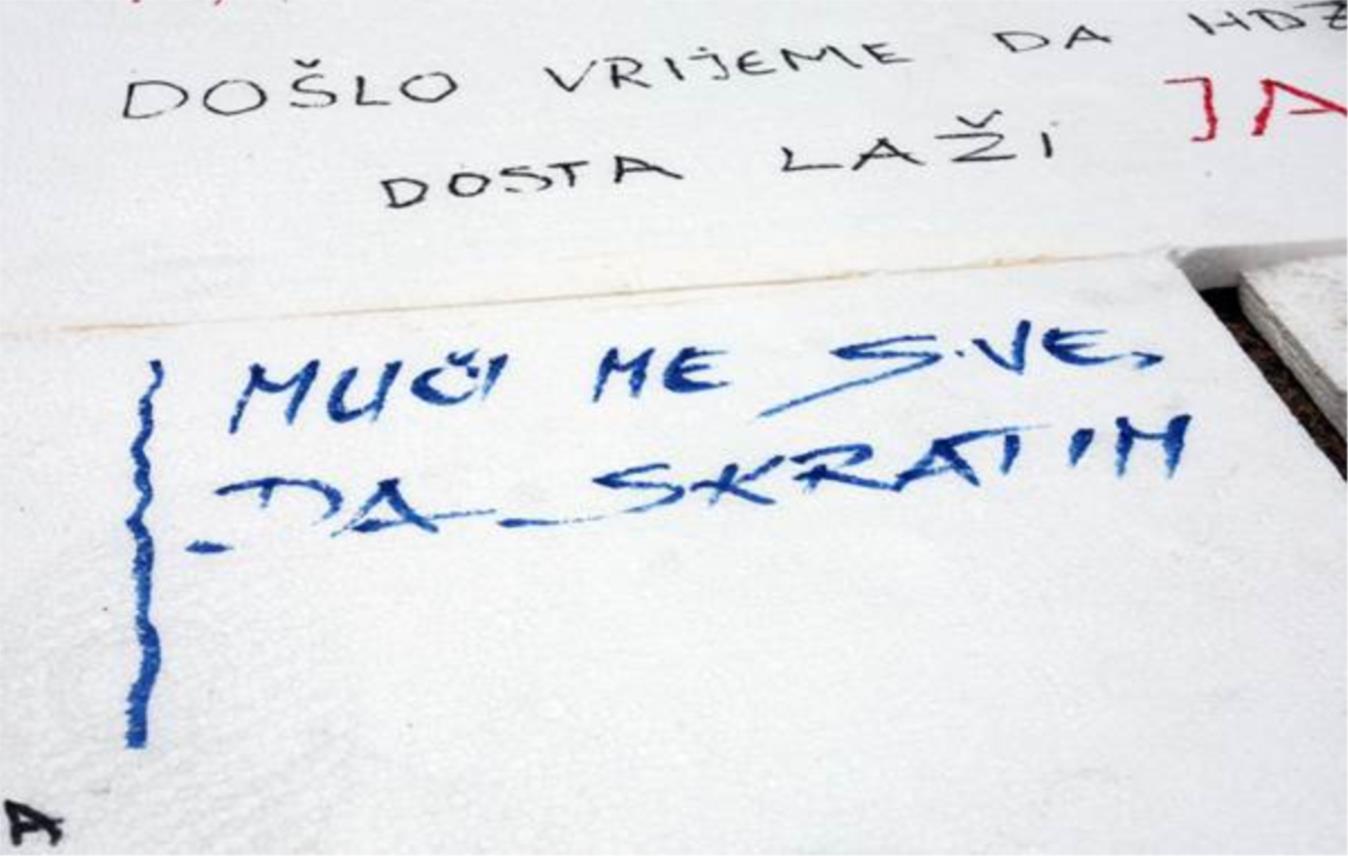 DOŠLO VRIJEME DA HDZ
DOSTA LAŽI JA
MUČI ME SVE,
DA SKRATIM
A